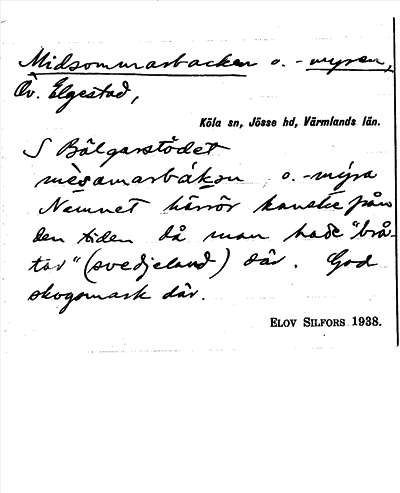 Midsommarbacken o. -myren,
Öv. Elgestad,
Köla sn, Jösse hd, Värmlands län.
S Bälgarstödet
mèsamarbáksn o. -mýra
Namnet härrör kanske från
den tiden då man hade "brå-
tar" (svedjeland) där. God
skogsmark där.
ELOV SILFORS 1938.